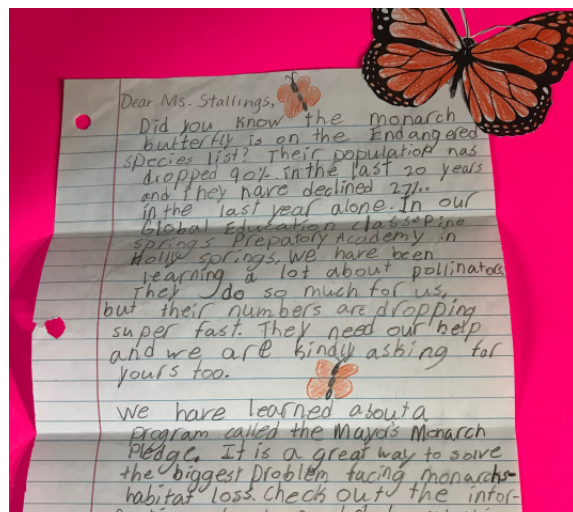 Dear Ms. Stallings,
Did you know the monarch
butterfly is on the Endangered
species list? Their population has
dropped 90% in the last 20 years
and they have declined 27%
in the last year alone. In our
Global Education class@Pine
springs Prepatory Academy in
Holly springs, we have been
learning a lot about pollinators.
They do so much for us,
but their numbers are dropping
super fast. They need our help
and we are kindly asking for
yours too.
We have learned about a
program called the Mayor's Monarch
Pledge. It is a great way to solve
the biggest problem facing monarchs-
habitat loss. Check out the infor-